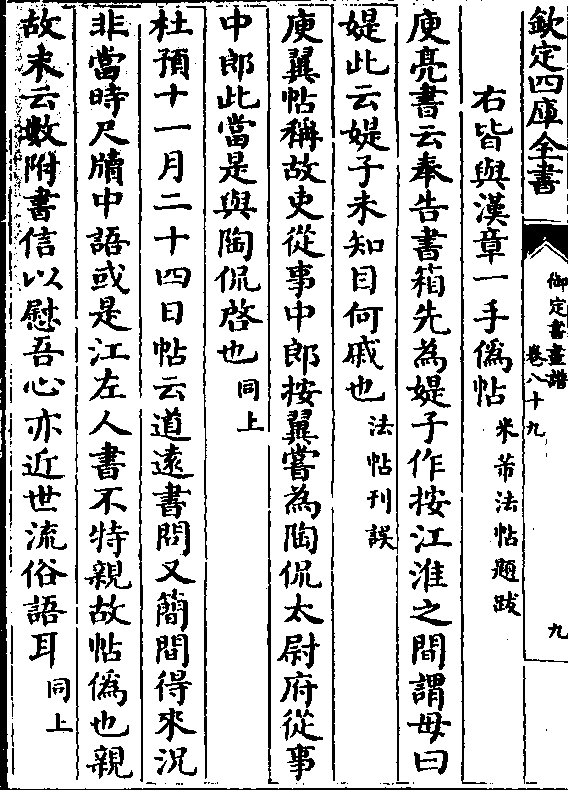 欽定四庫全書
御定書畫譜
卷八十九
九
右皆與漢章一手偽帖米芾法帖題跋
庾亮書云奉告書箱先為媞子作按江淮之間謂母曰
媞此云媞子未知目何戚也法帖刋誤
庾翼帖稱故吏從事中郎按翼嘗為陶侃太尉府從事
中郎此當是與陶侃啓也同上
杜預十一月二十四日帖云道遠書問又簡間得來況
非當時尺牘中語或是江左人書不特親故帖偽也親
故末云數附書信以慰吾心亦近世流俗語耳同上